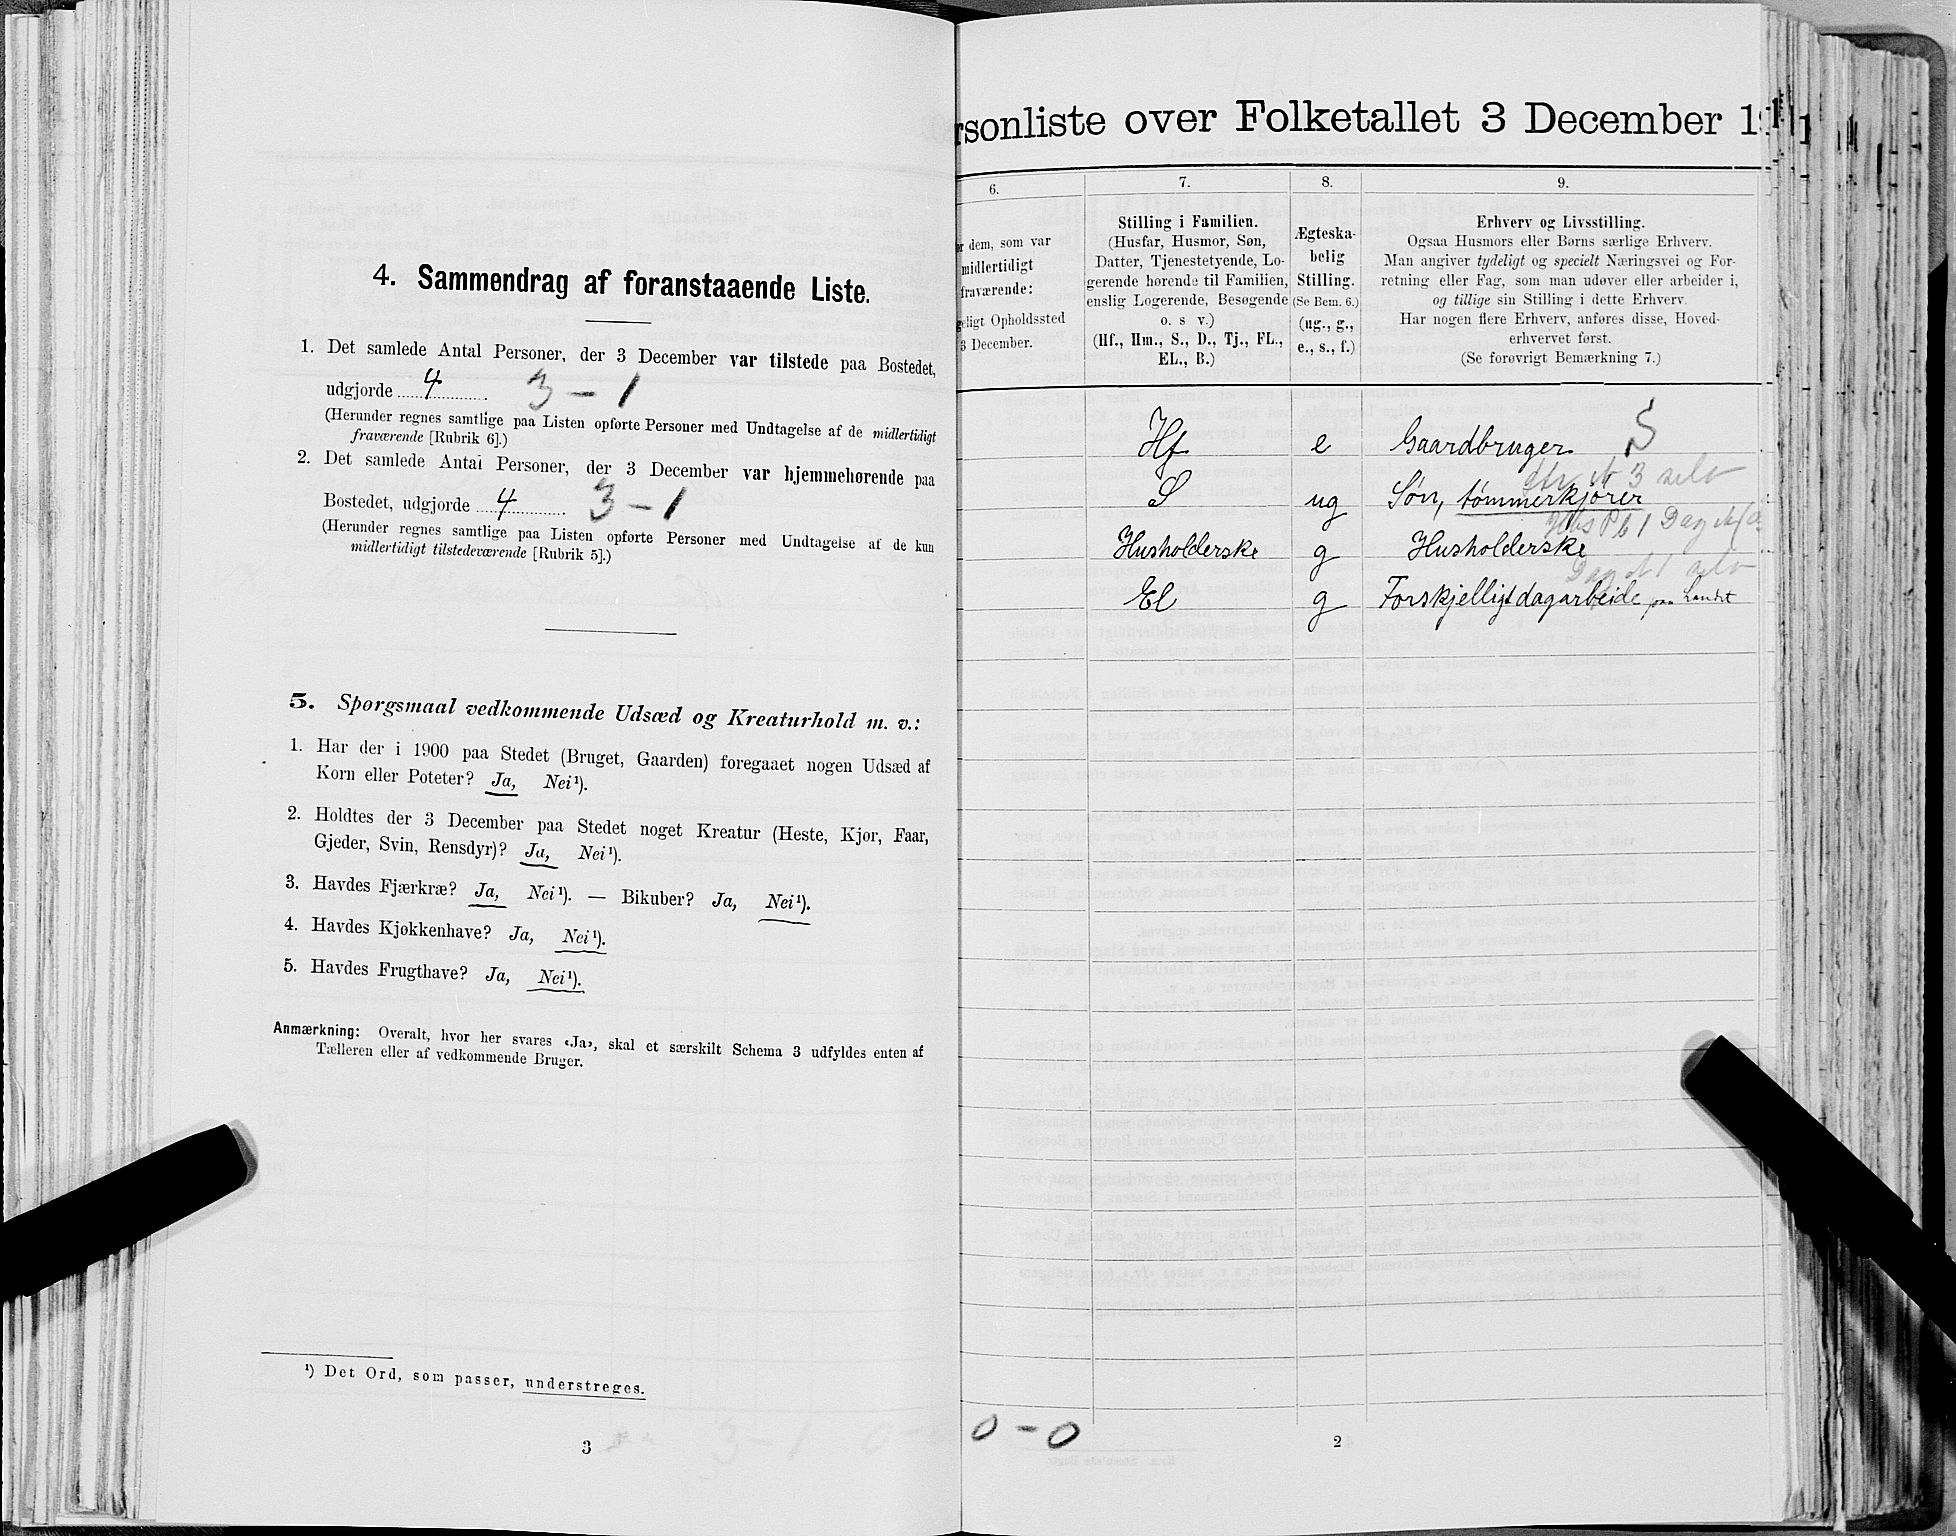 4. Sammendrag af foranstaaende Liste.
1. Det samlede Antal Personer, der 3 December var tilstede paa Bostedet,
udgjorde 4 3 – 1
(Herunder regnes samtlige paa Listen opførte Personer med Undtagelse af de midlertidigt
fraværende [Rubrik 6].)
2. Det samlede Antal Personer, der 3 December var hjemmehørende paa
Bostedet, udgjorde 4 3 – 1
(Herunder regnes samtlige paa Listen opførte Personer med Undtagelse af de kun
midlertidigt tilstedeværende [Rubrik 5].)
5. Spørgsmaal vedkommende Udsæd og Kreaturhold m. v.:
1. Har der i 1900 paa Stedet (Bruget, Gaarden) foregaaet nogen Udsæd af
Korn eller Poteter? Ja, Nei¹).
2. Holdtes der 3 December paa Stedet noget Kreatur (Heste, Kjør, Faar,
Gjeder, Svin, Rensdyr)? Ja, Nei¹).
3. Havdes Fjærkræ? Ja, Nei¹). — Bikuber? Ja, Nei¹).
4. Havdes Kjøkkenhave? Ja, Nei¹).
5. Havdes Frugthave? Ja, Nei¹).
Anmærkning: Overalt, hvor her svares «Ja», skal et særskilt Schema 3 udfyldes enten af
Tælleren eller af vedkommende Bruger.
¹) Det Ord, som passer, understreges.
3
rsonliste over Folketallet 3 December 1
6. 7. 8. 9.
dem, som var
midlertidigt
fraværende:
geligt Opholdssted
3 December.
Stilling i Familien.
(Husfar, Husmor, Søn,
Datter, Tjenestetyende, Lo-
gerende hørende til Familien,
enslig Logerende, Besøgende
o. s v.)
(Hf., Hm., S., D., Tj., FL.,
EL., B.)
Ægteska-
belig
Stilling.
(Se Bem. 6.)
(ug., g.,
e., s., f.)
Erhverv og Livsstilling.
Ogsaa Husmors eller Børns særlige Erhverv.
Man angiver tydeligt og specielt Næringsvei og For-
retning eller Fag, som man udøver eller arbeider i,
og tillige sin Stilling i dette Erhverv.
Har nogen flere Erhverv, anføres disse, Hoved-
erhvervet først.
(Se forøvrigt Bemærkning 7.)
Hf e Gaardbruger S
3 selv
S ug Søn, tømmerkjører
1 Dag
Husholderske g Husholderske
Dag 1 selv
El g Forskjelligt dagarbeide paa Landet
0 – 0
2